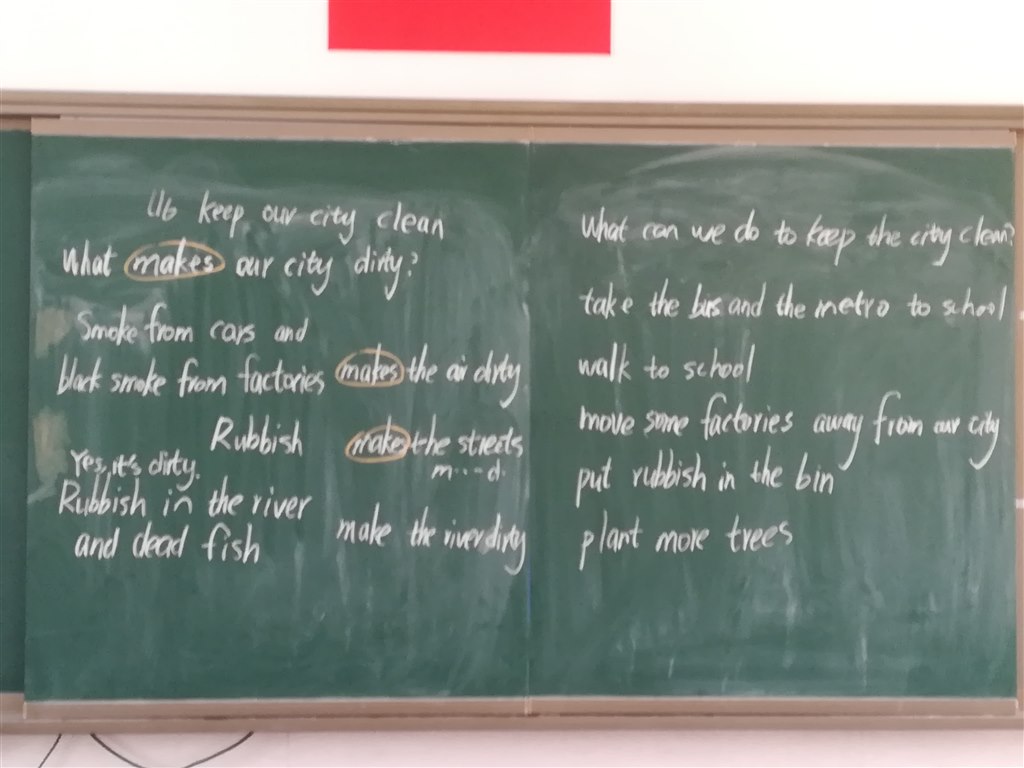 U6 keep our city clean
What makes our city dirty?
Smoke from cars and
black smoke from factories makes the air dirty
Rubbish makes the streets
m...d.
Yes, it's dirty.
Rubbish in the river
and dead fish make the river dirty
What can we do to keep the city clean?
take the bus and the metro to school
walk to school
move some factories away from our city
put rubbish in the bin
plant more trees